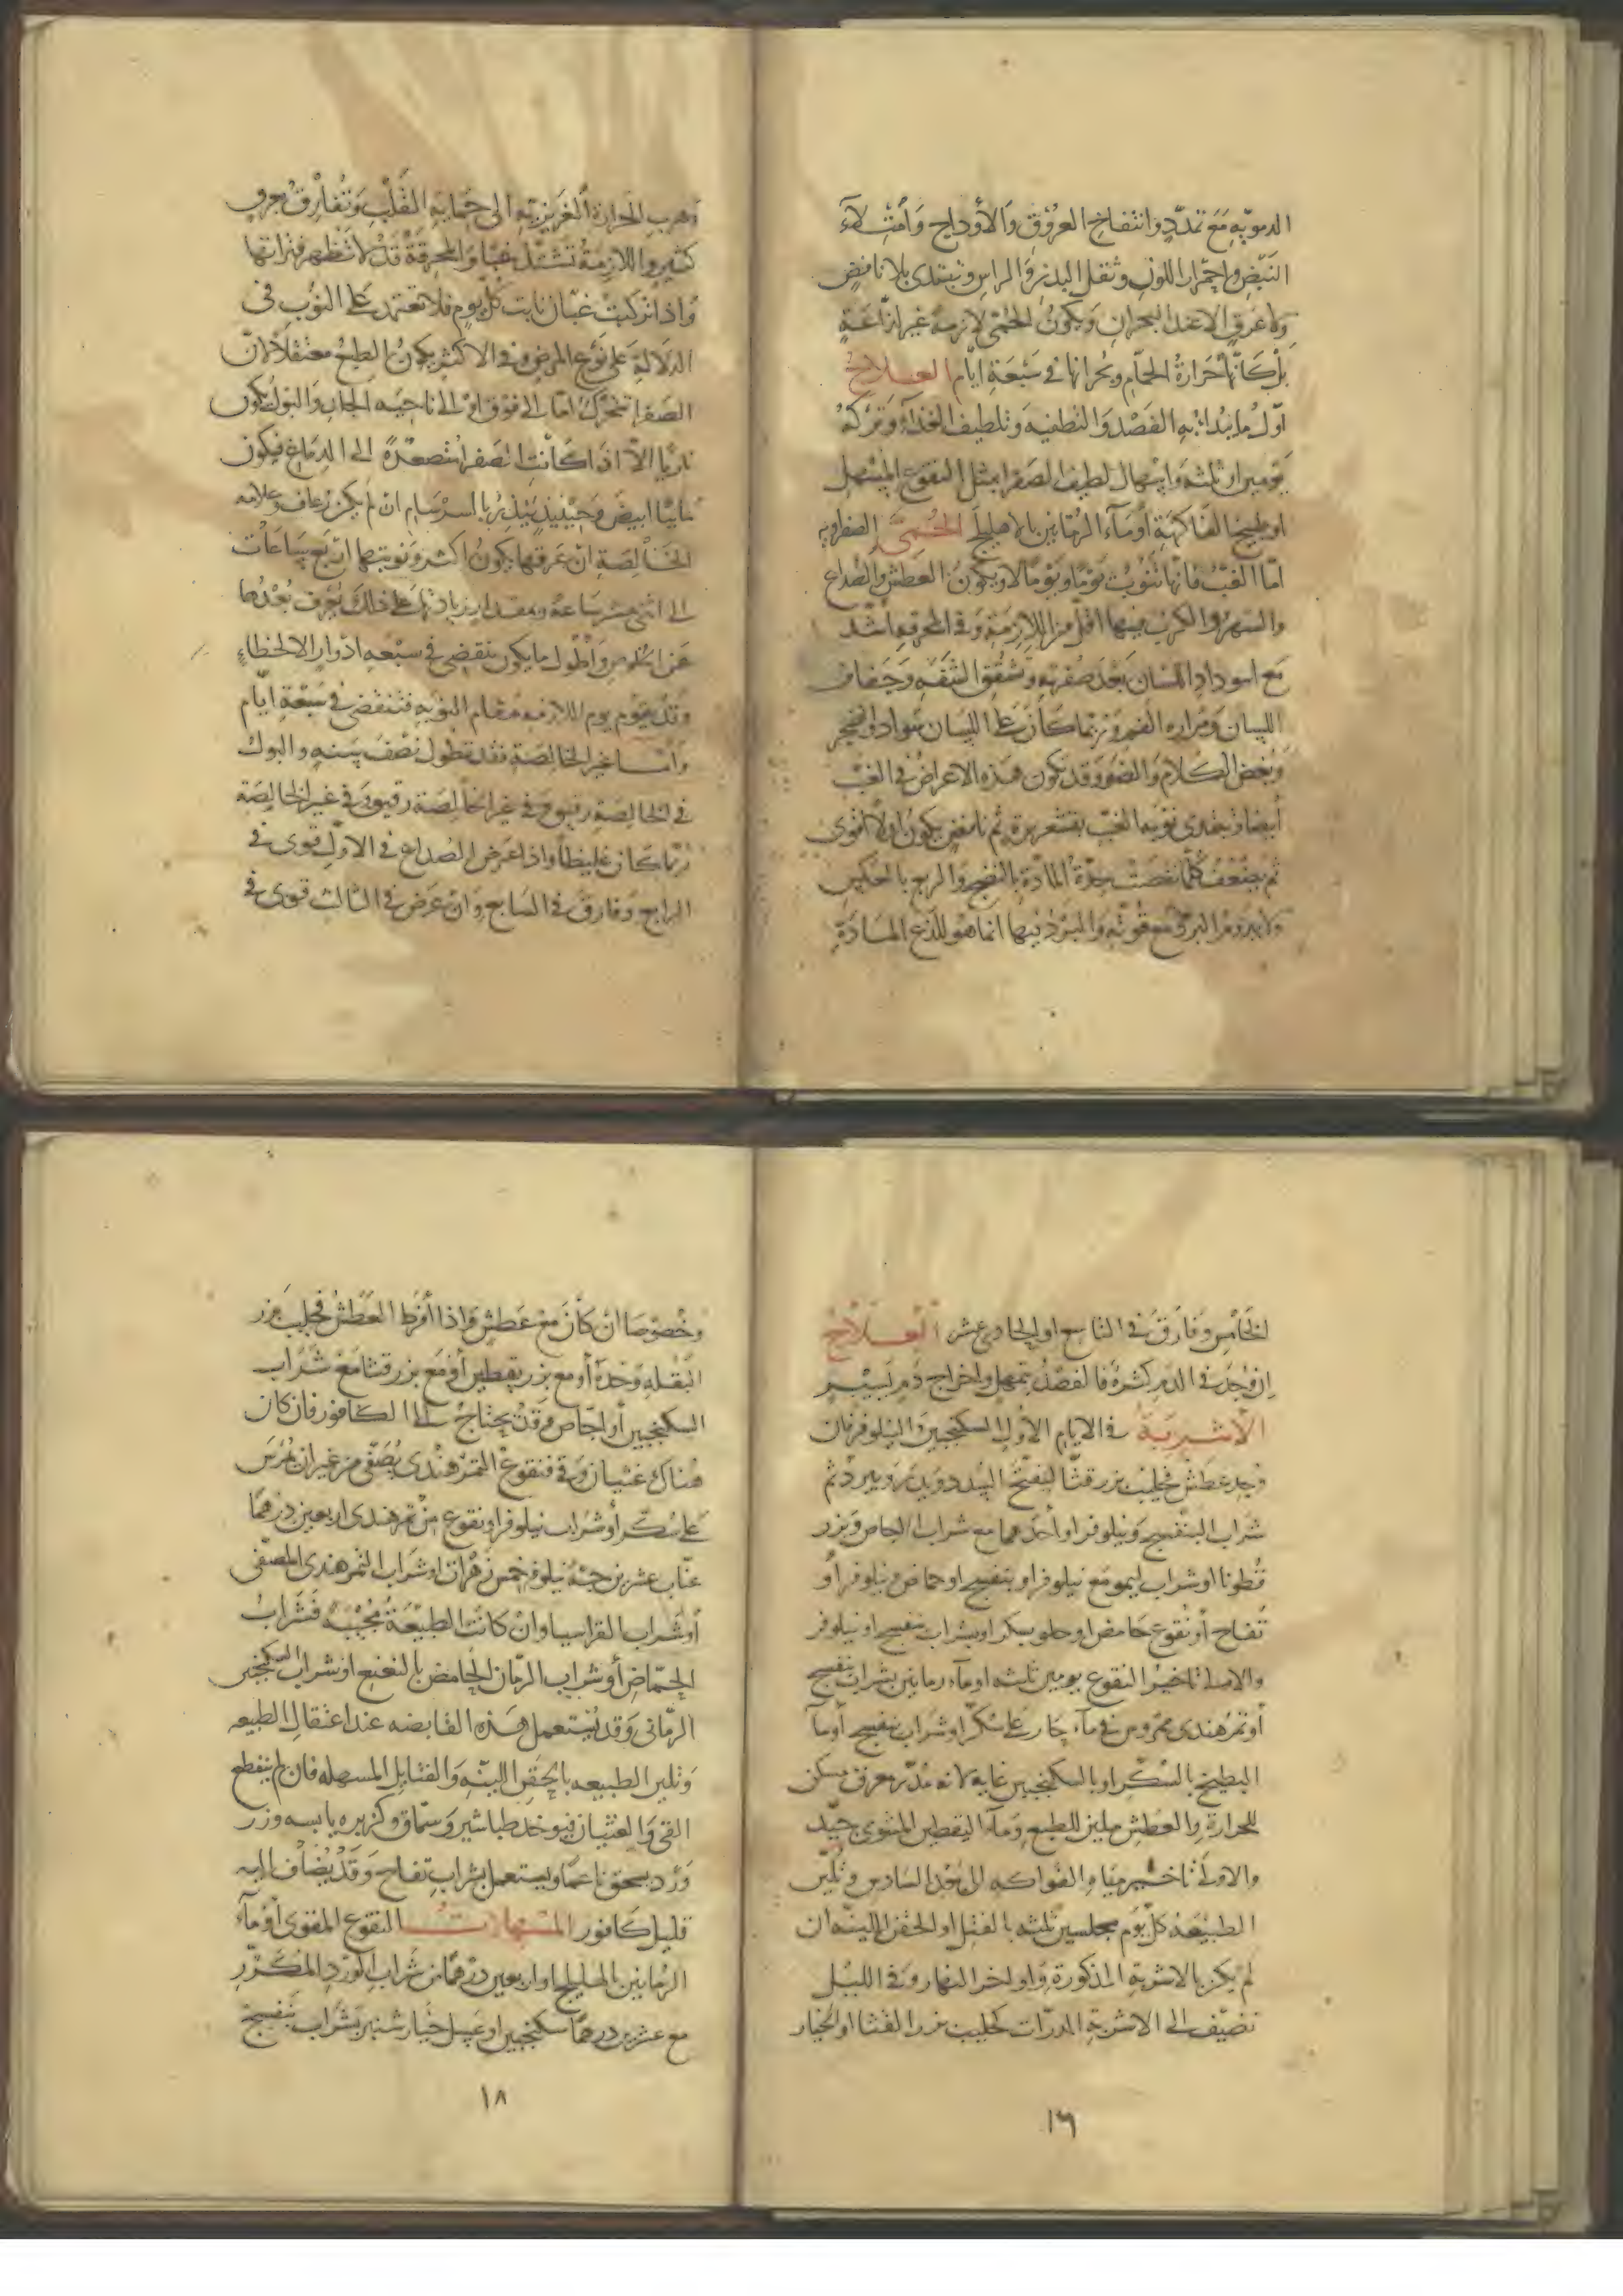 الدمويّه مَعَ تمدّدٍ وانتفاخ العُرُوق والأوداج وَامْتِلآء
النَبْض واحمرار اللون وثقل البدن وَالراس وتبتدى بلا نافض
ولا عَرق الا عند البحران وَيكونُ الحمّى لازمة غير لذّاعة
بل كَانّها حَرارةُ الحمّام وبحرانها فى سَبْعَة ايّام العلاج
اوّل ما يُبدا به الفَصْد وَالتطفيه وَتلطيف الغذآء وَتركه
يَومين او ثلثه وَاسهال لطيف للصفرا مثل النقوع المسهل
او طبيخ الفاكهَة أومآء الرمّانين بالاهليلج الحُمّى الصفراويه
امّا الغبّ فانّها تنوبُ يَوْمًا ويَوْمًا لا ويكونُ العطش والصُداع
والسَهر والكرب فيها اقلّ من اللازمة وَفى المحرقه اشد
مَع اسوداد اللسان بَعْدَ صُفرته وَتشقق الشَفه وَجَفاف
اللسان وَمَراره الفم وَربّما كان على اللسان سواد والضجر
وبُغض الكلام وَالضوء وقد تكون هذه الاعراض فى الغبّ
أيضا وتبتدى نوبه الغبّ بقشعريرة ثم نافض يكون اولا اقوى
ثم يضعف كلّما نضجت حِدّة المادّة بالنضج والربع بالعَكس
وَالبَرد فيها انما هو للذع المادّة
وَهرب الحرارة الغريزيّه الى حِمايَةِ القَلْبِ وَتُفارق بعرق
كثير واللازمةُ تشتدّ غبًا وَالمحرقةُ قد لا تظهر فتراتها
وَاذا تركبَتْ غبّان نابت كلّ يوم فلا تعتمد على النوَب فى
الدلالة على نَوع المرض وفى الاكثر يكون الطبعُ معتقلًا لانّ
الصفرا تتحرّك امّا الى فوق اوْ الى ناحيه الجلد وَالبَول يكون
ناريّا الاّ اذا كانت الصفرا متصعّدةً الى الدماغ فيكون
مائيًّا ابيض وَحِينيذٍ يُنذِرُ بالسرسَام ان لم يكن رُعاف وعلامه
الخالِصَة انّ عَرقها يكونُ اكثر وَنوبتها ارْبَع سَاعات
الى اثنى عشر سَاعة وبمقدار زيادتها على ذلك يُعْرف بُعْدُها
عَن الخلوص وَأطْول ما يكون تنقضى فى سبْعه ادْوار الا لخطاءٍ
وَقد يقوم يوم اللازمه مقام النوبه فتنقضى فى سَبْعَة ايّام
وامّا غير الخالصَة فقد تطول نصْفَ سَنه والبول
فى الخالِصَة رقيق وفى غير الخالِصَة رقيق وَفى غير الخالِصَة
رُبّما كان غليظا واذا عَرض الصُداع فى الاوّل قوى فى
الرابع وَفارق فى السابع وَانْ عَرض فى الثالث قوى فى
الخَامس وفارَق فى التاسع او الحادى عشر العِلاج
ان وُجدَ فى الدم كثرة فالفَصْدُ بتمهل واخراج دَمٍ يَسير
الأشربة فى الايام الأوَل السكنجبين وَالنيلوفر فان
وُجد عطش فحليبُ بزر قثّا لتفتّح السُدد ويُدرّ ويبرد ثم
شراب البنفسج وَنيلوفر او أحدهما مع شراب الجاص وَبزر
قُطونا او شراب ليمو مَع نيلوفر او بنفسج او حماض ونيلوفر أو
تُفاح أو نُقوع حَامض او حلو بسكر او بشراب بنفسج او نيلوفر
والاولى تاخير النقوع يومين ثلثه اومآء رمانين بشراب بنفسج
أو تمر هندى ممروس فى مآء حار على سُكّر او شراب بنفسج أومآ
البطيخ بالسُكّر او بالسكنجبين غايه لانه مُدّر معرق مسكن
للحرارة والعطش ملين للطبع وَمآء اليقطين المشوى جيّد
والاولى تاخير ميَاه الفواكه الى بَعْد السَادس وتُليّن
الطبيعَه كلّ يوم مجلسين ثلثه بالفتل او الحقن اللينه ان
لمْ يكن بالاشربه المذكورة وَاواخر النهار وَفى الليل
تضيّف الى الاشربة المدرّات كحليب بزر القثا او الخيار
١٦
وخُصوصَا انْ كَانَ مَعْ عَطش وَاذا أفرط العَطشُ فحليبُ بزر
البَقْله وَحْدهُ أومع بزر يقطين أومَع بزر قثا مَعْ شَرابِ
السكنجبين أو اجّاص وَقدْ يحتاجُ الى الكافور فان كان
هُناك غثيان وَقى فنقوعُ التمر هندى يُصَفّى من غير ان يُمْرَس
على سُكّر أو شراب نيلوفر او نقوع مِنْ تمر هندى اربعين درْهمًا
عنّاب عشرين حبّة نيلوفر خمس زَهْرات او شراب التمر هندى المصَفّى
أو شَراب القراسيا وانْ كانتْ الطبيْعَةُ مُجيْبَةً فَشرابُ
الحمّاض أو شراب الرمّان الحامض بالنعنع او شراب السكنجبين
الرمّانى وَقد تُستعمل هَذه القابضه عند اعتقال الطبيعه
وَتُلين الطبيعه بالحقن الليّنه وَالفتايل المسهله فان لم ينقطع
القى وَالغثيان فيُوخذ طباشير وَسمّاق وكزبره يابسه وزر
وَرْد يسحق ناعمًا ويستعمل بشراب تفاح وَقَدْ يُضاف اليه
قليل كَافور المسْهلاتُ النقوع المقوى أوْمآء
الرمّانين بالهليلج او اربعين درْهمًا من شراب الوَردِ المُكَرّر
مع عشرين درهمًا سكنجبين او عَسل خيار شنبر بشراب بنفسج
١٨